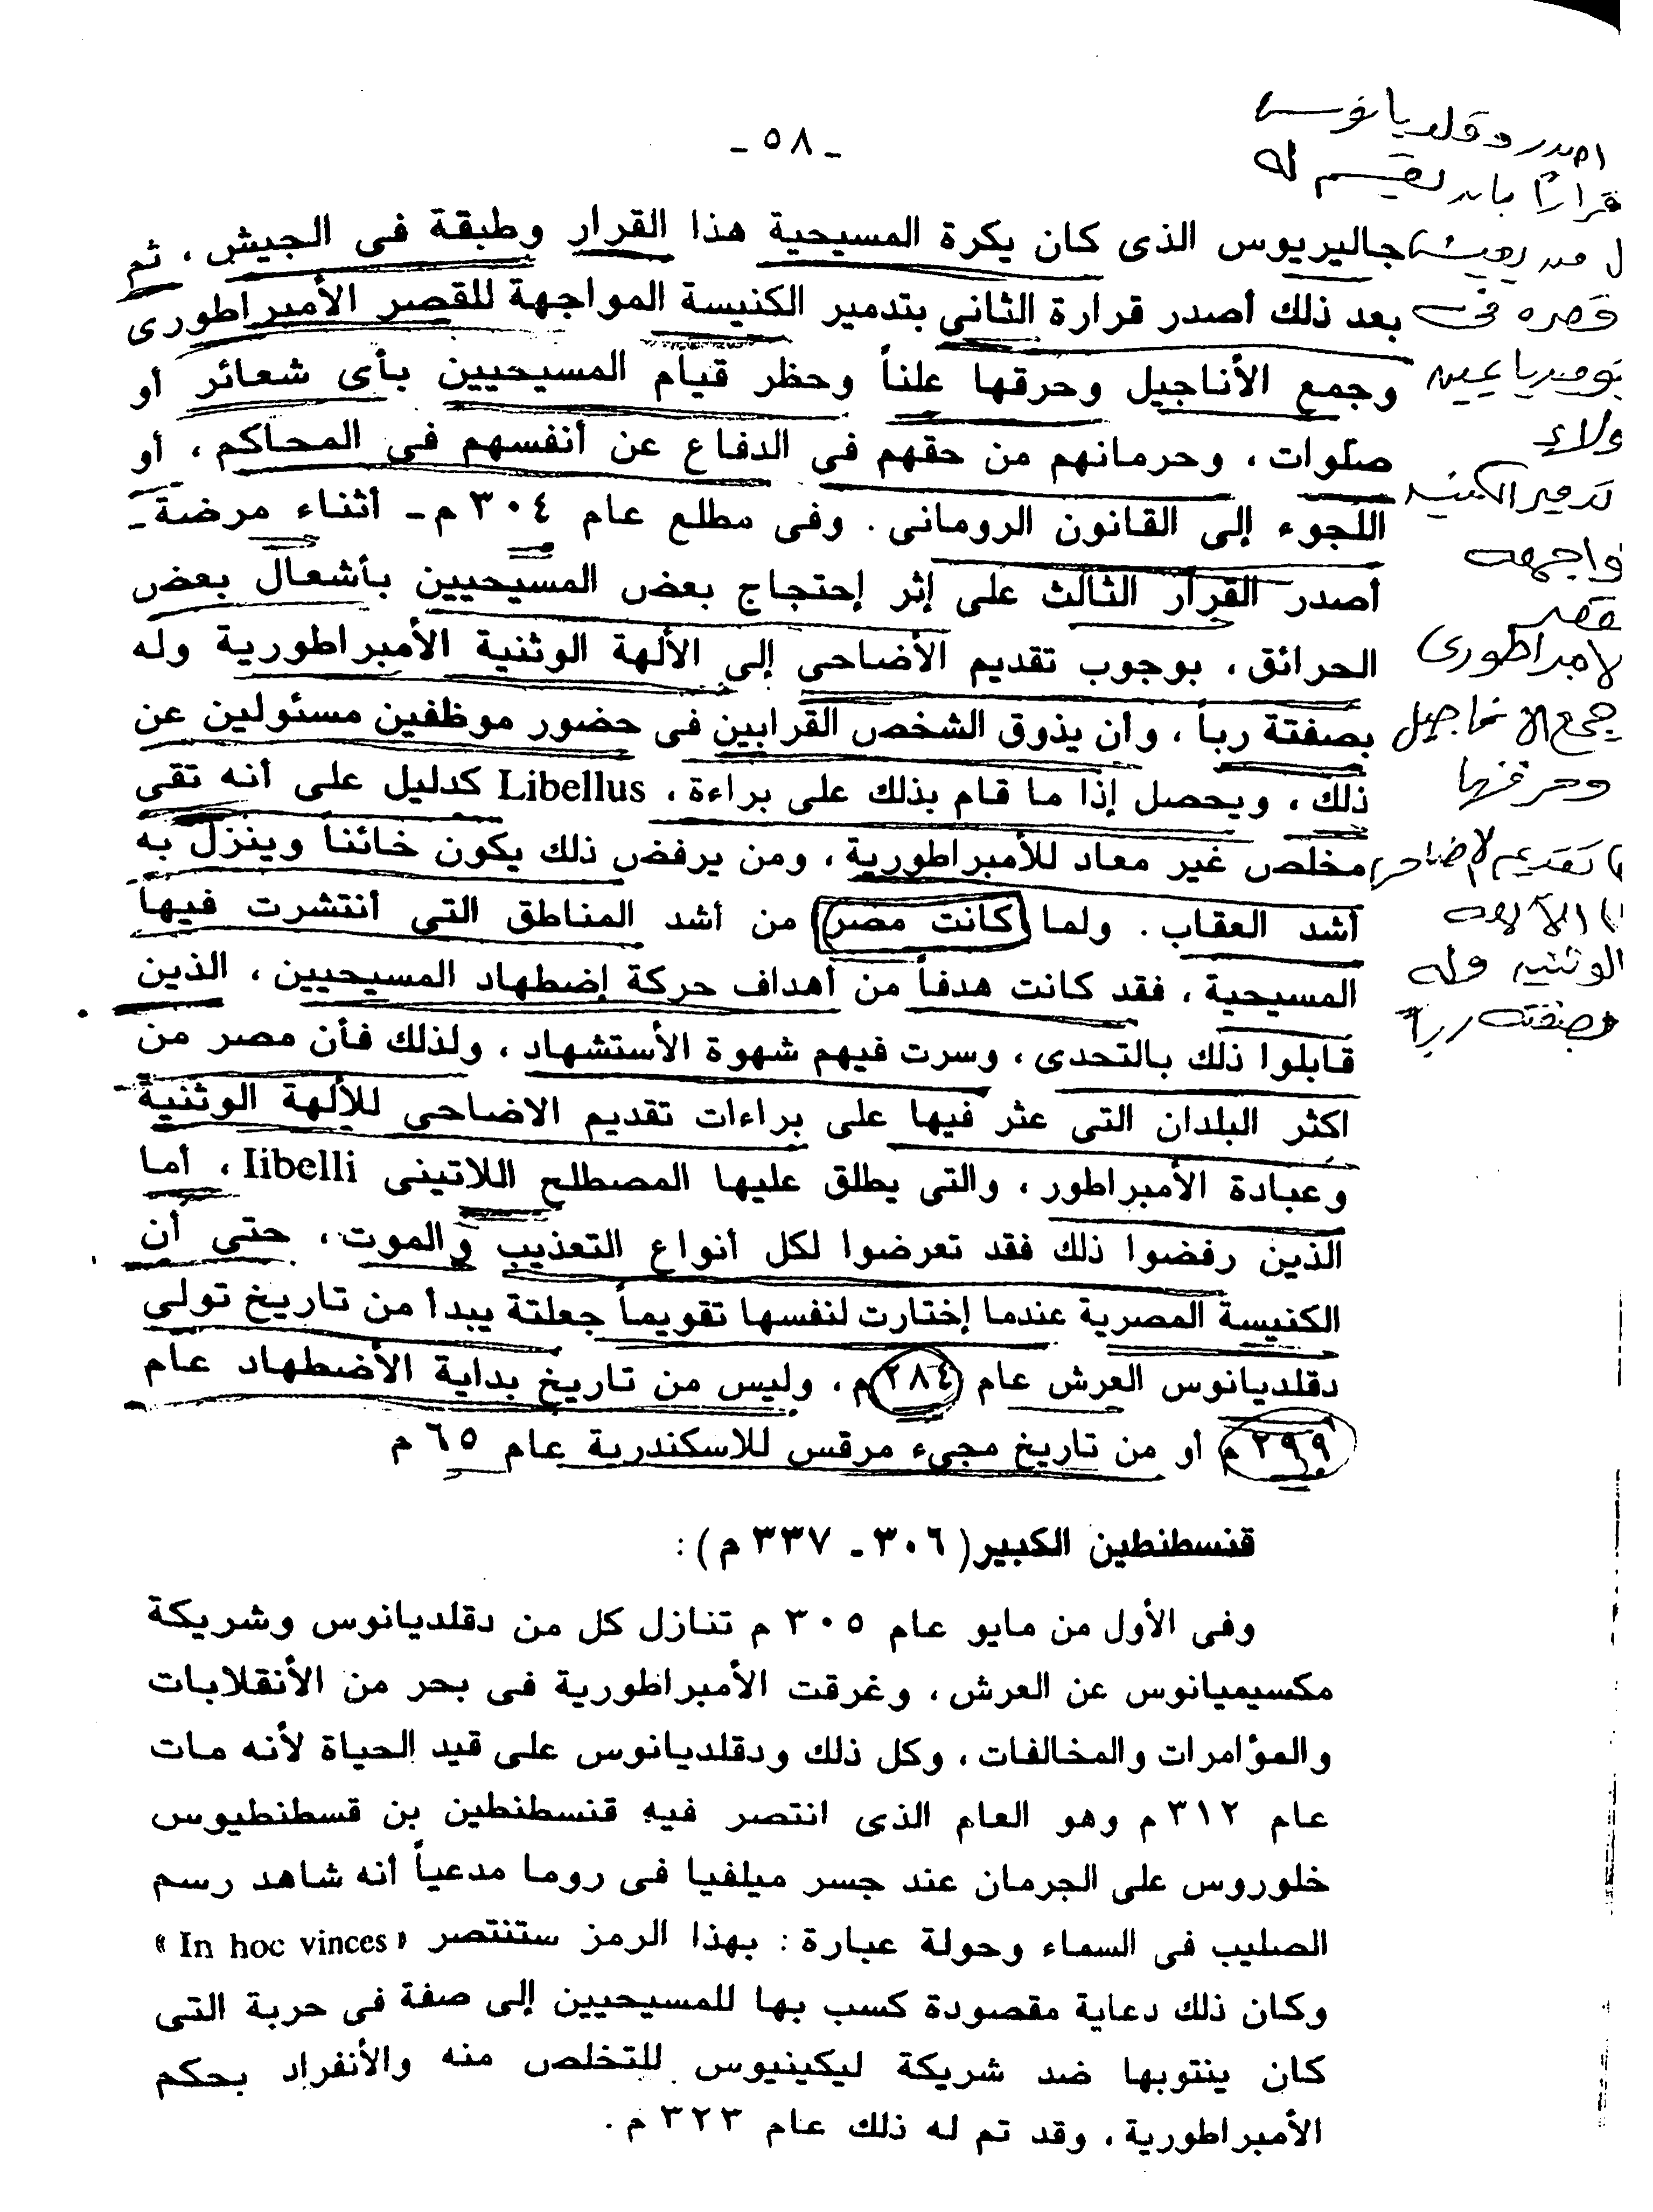 - ٥٨ -
جاليريوس الذى كان يكرة المسيحية هذا القرار وطبقة فى الجيش ، ثم
بعد ذلك أصدر قرارة الثانى بتدمير الكنيسة المواجهة للقصر الأمبراطورى
وجمع الأناجيل وحرقها علناً وحظر قيام المسيحيين بأى شعائر أو
صلوات ، وحرمانهم من حقهم فى الدفاع عن أنفسهم فى المحاكم ، أو
اللجوء إلى القانون الرومانى . وفى مطلع عام ٣٠٤ م - أثناء مرضة -
أصدر القرار الثالث على إثر إحتجاج بعض المسيحيين بأشعال بعض
الحرائق ، بوجوب تقديم الأضاحى إلى الألهة الوثنية الأمبراطورية وله
بصفتة رباً ، وأن يذوق الشخص القرابين فى حضور موظفين مسئولين عن
ذلك ، ويحصل إذا ما قام بذلك على براءة ، Libellus كدليل على أنه تقى
مخلص غير معاد للأمبراطورية ، ومن يرفض ذلك يكون خائناً وينزل به
أشد العقاب . ولما كانت مصر من أشد المناطق التى أنتشرت فيها
المسيحية ، فقد كانت هدفاً من أهداف حركة إضطهاد المسيحيين ، الذين
قابلوا ذلك بالتحدى ، وسرت فيهم شهوة الأستشهاد ، ولذلك فأن مصر من
اكثر البلدان التى عثر فيها على براءات تقديم الاضاحى للألهة الوثنية
وعبادة الأمبراطور ، والتى يطلق عليها المصطلح اللاتينى Iibelli ، أما
الذين رفضوا ذلك فقد تعرضوا لكل أنواع التعذيب والموت ، حتى أن
الكنيسة المصرية عندما إختارت لنفسها تقويماً جعلتة يبدأ من تاريخ تولى
دقلديانوس العرش عام ٢٨٤ م ، وليس من تاريخ بداية الأضطهاد عام
٢٩٩ م أو من تاريخ مجىء مرقس للاسكندرية عام ٦٥ م
قنسطنطين الكبير (٣٠٦ - ٣٣٧ م) :
وفى الأول من مايو عام ٣٠٥ م تنازل كل من دقلديانوس وشريكة
مكسيميانوس عن العرش ، وغرقت الأمبراطورية فى بحر من الأنقلابات
والمؤامرات والمخالفات ، وكل ذلك ودقلديانوس على قيد الحياة لأنه مات
عام ٣١٢ م وهو العام الذى انتصر فيه قنسطنطين بن قسطنطيوس
خلوروس على الجرمان عند جسر ميلفيا فى روما مدعياً أنه شاهد رسم
الصليب فى السماء وحولة عبارة : بهذا الرمز ستنتصر « In hoc vinces »
وكان ذلك دعاية مقصودة كسب بها للمسيحيين إلى صفة فى حربة التى
كان ينتوبها ضد شريكة ليكينيوس للتخلص منه والأنفراد بحكم
الأمبراطورية ، وقد تم له ذلك عام ٣٢٣ م .
اصدر دقلديانوس
قراراً بان يقسم له
قصره فى
ولاء
تدمير الكنيسه
الامبراطورى
جمع الاناجيل
وحرقها
تقديم الاضاحى
الألهه
الوثنيه وله
بصفته رباً